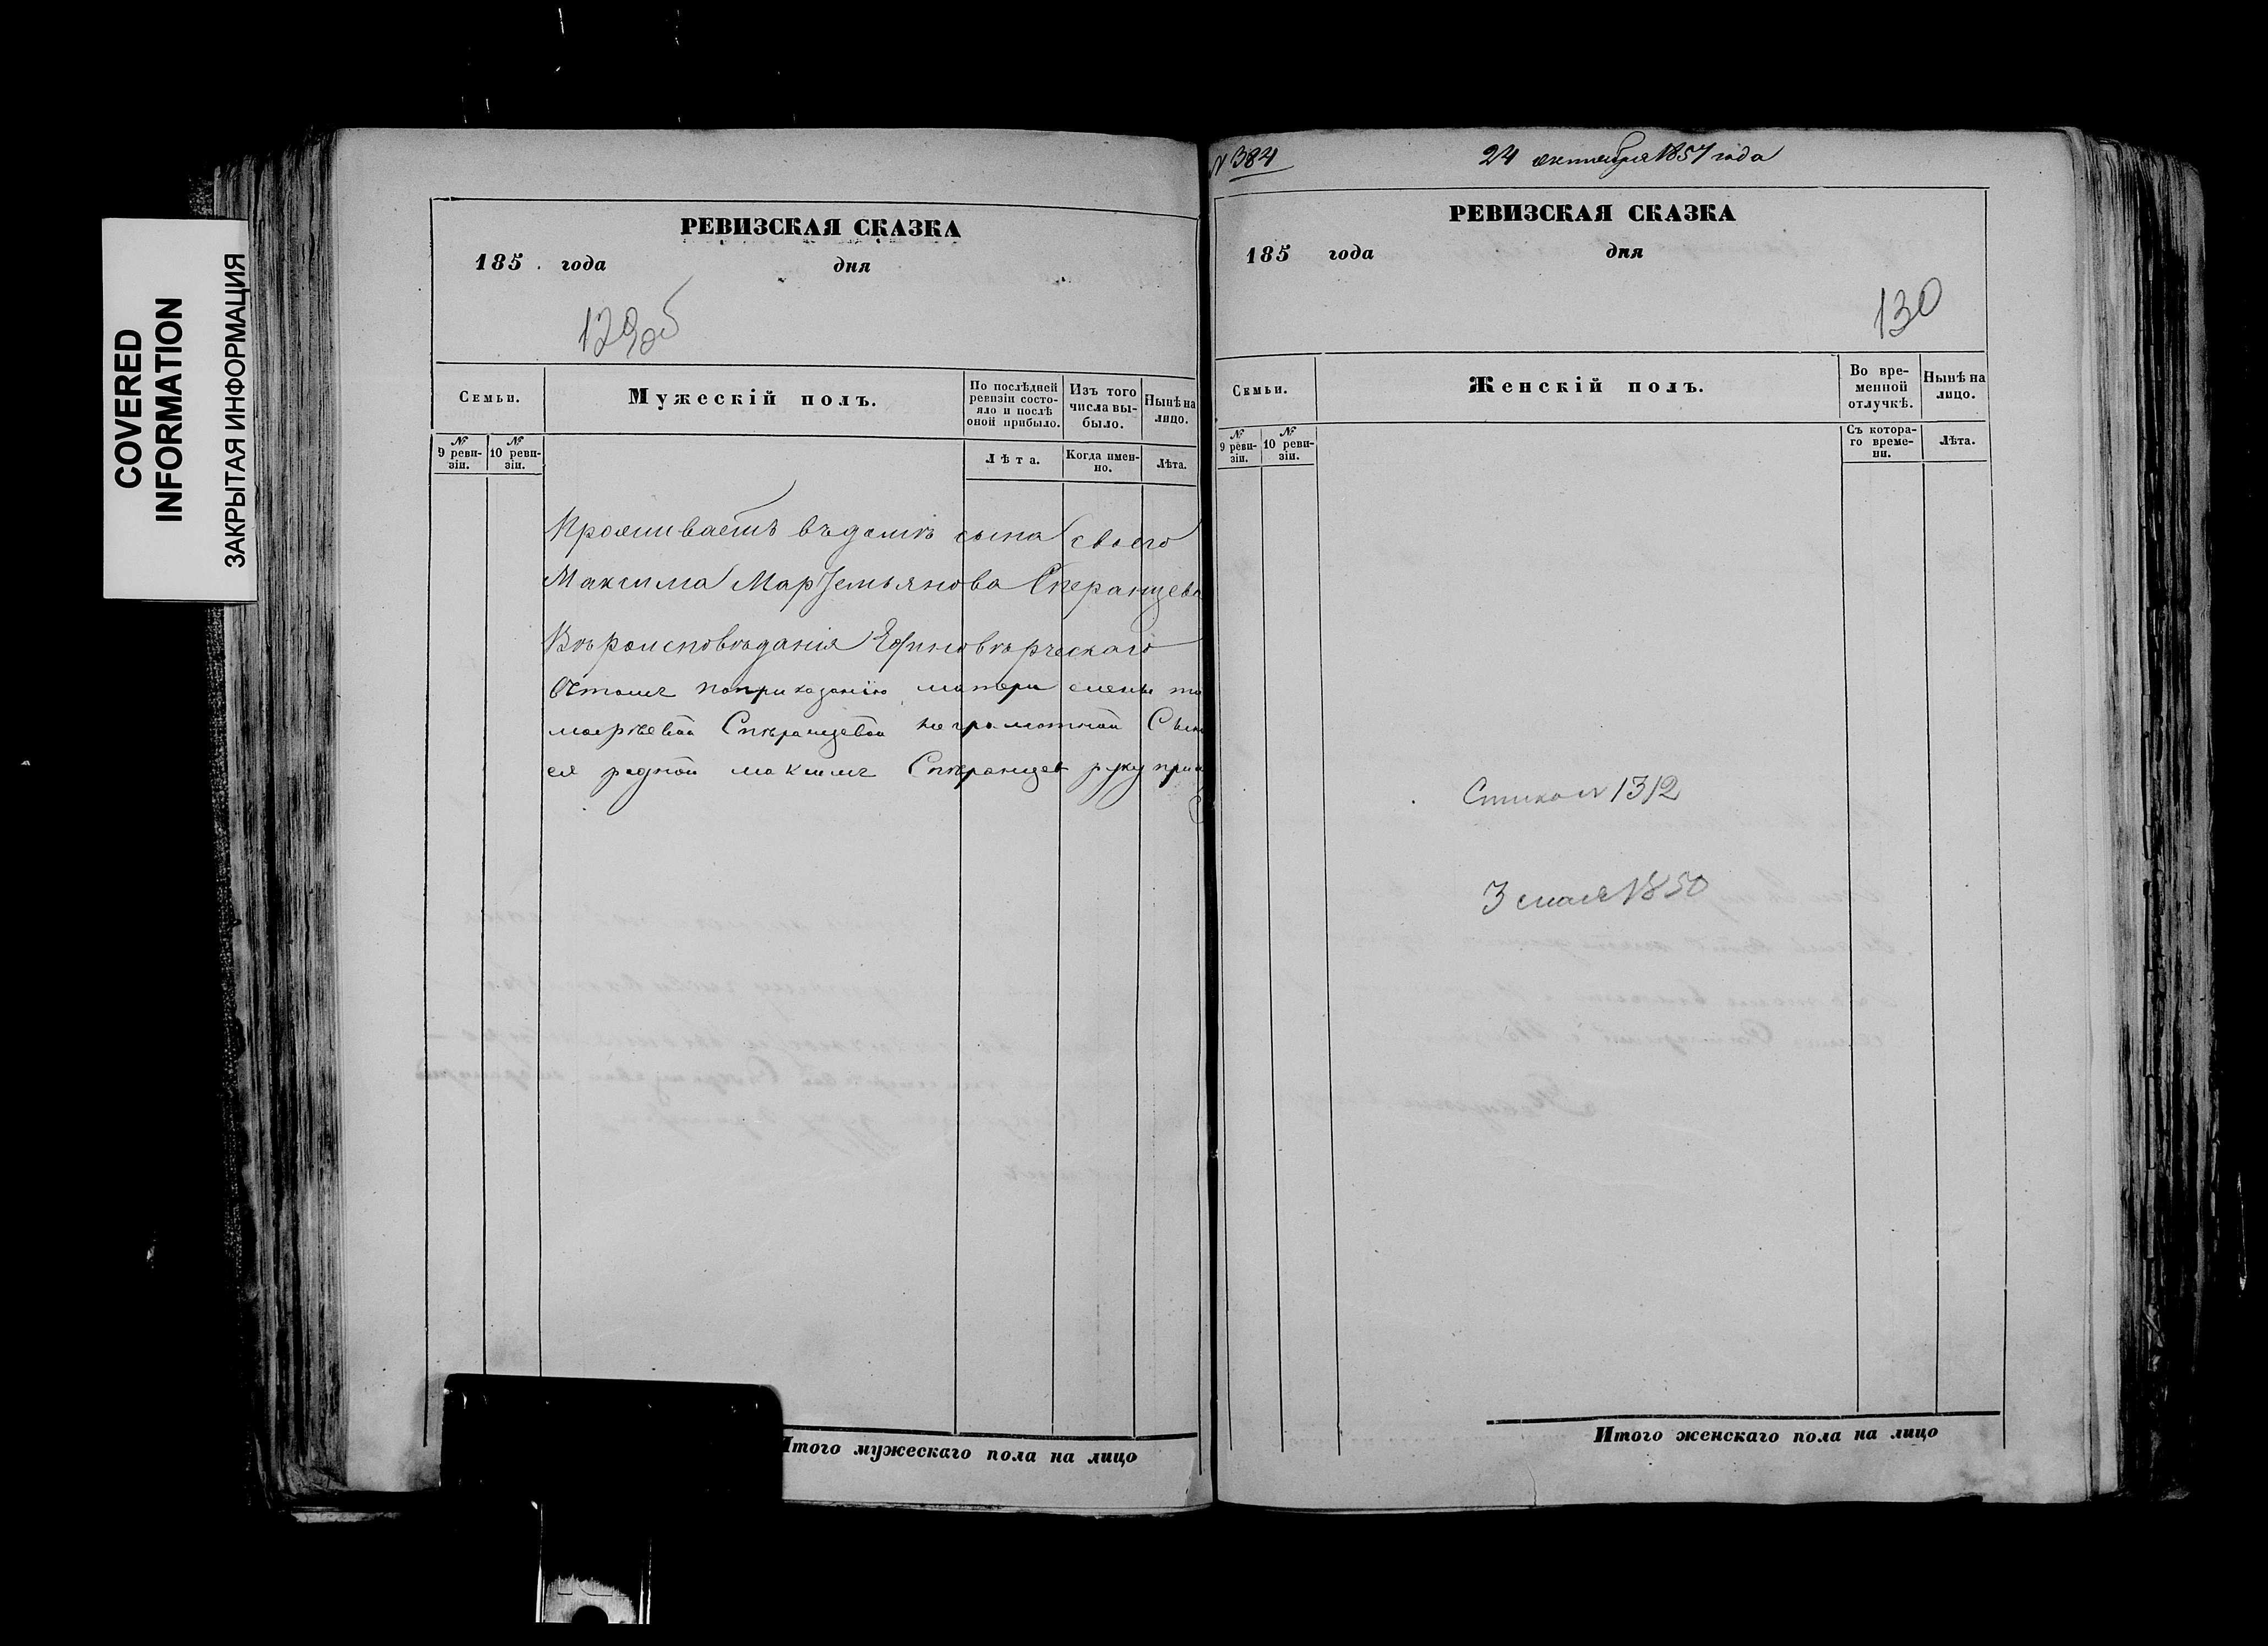 COVERED
INFORMATION
ЗАКРЫТАЯ ИНФОРМАЦИЯ
РЕВИЗСКАЯ СКАЗКА
185 . года дня
129об
Семьи.
Мужескій полъ.
По послѣдней ревизіи состояло и послѣ оной прибыло.
Изъ того числа выбыло.
Нынѣ на лицо.
№ 9 ревизіи.
№ 10 ревизіи.
Лѣта.
Когда именно.
Лѣта.
Проживаетъ въ домѣ сына своего
Максима Мартемьянова Сперанцева
Вѣроисповѣданія Единовѣрческаго
поприказанію матери
Сперанцевой неграмотной Сынъ
ея родной максимъ Сперанцев руку
Итого мужескаго пола на лицо
№ 384
24 октября 1857 года
РЕВИЗСКАЯ СКАЗКА
185 года дня
130
Семьи.
Женскій полъ.
Во временной отлучкѣ.
Нынѣ на лицо.
№ 9 ревизіи.
№ 10 ревизіи.
Съ котораго времени.
Лѣта.
1312
3 мая 1850
Итого женскаго пола на лицо